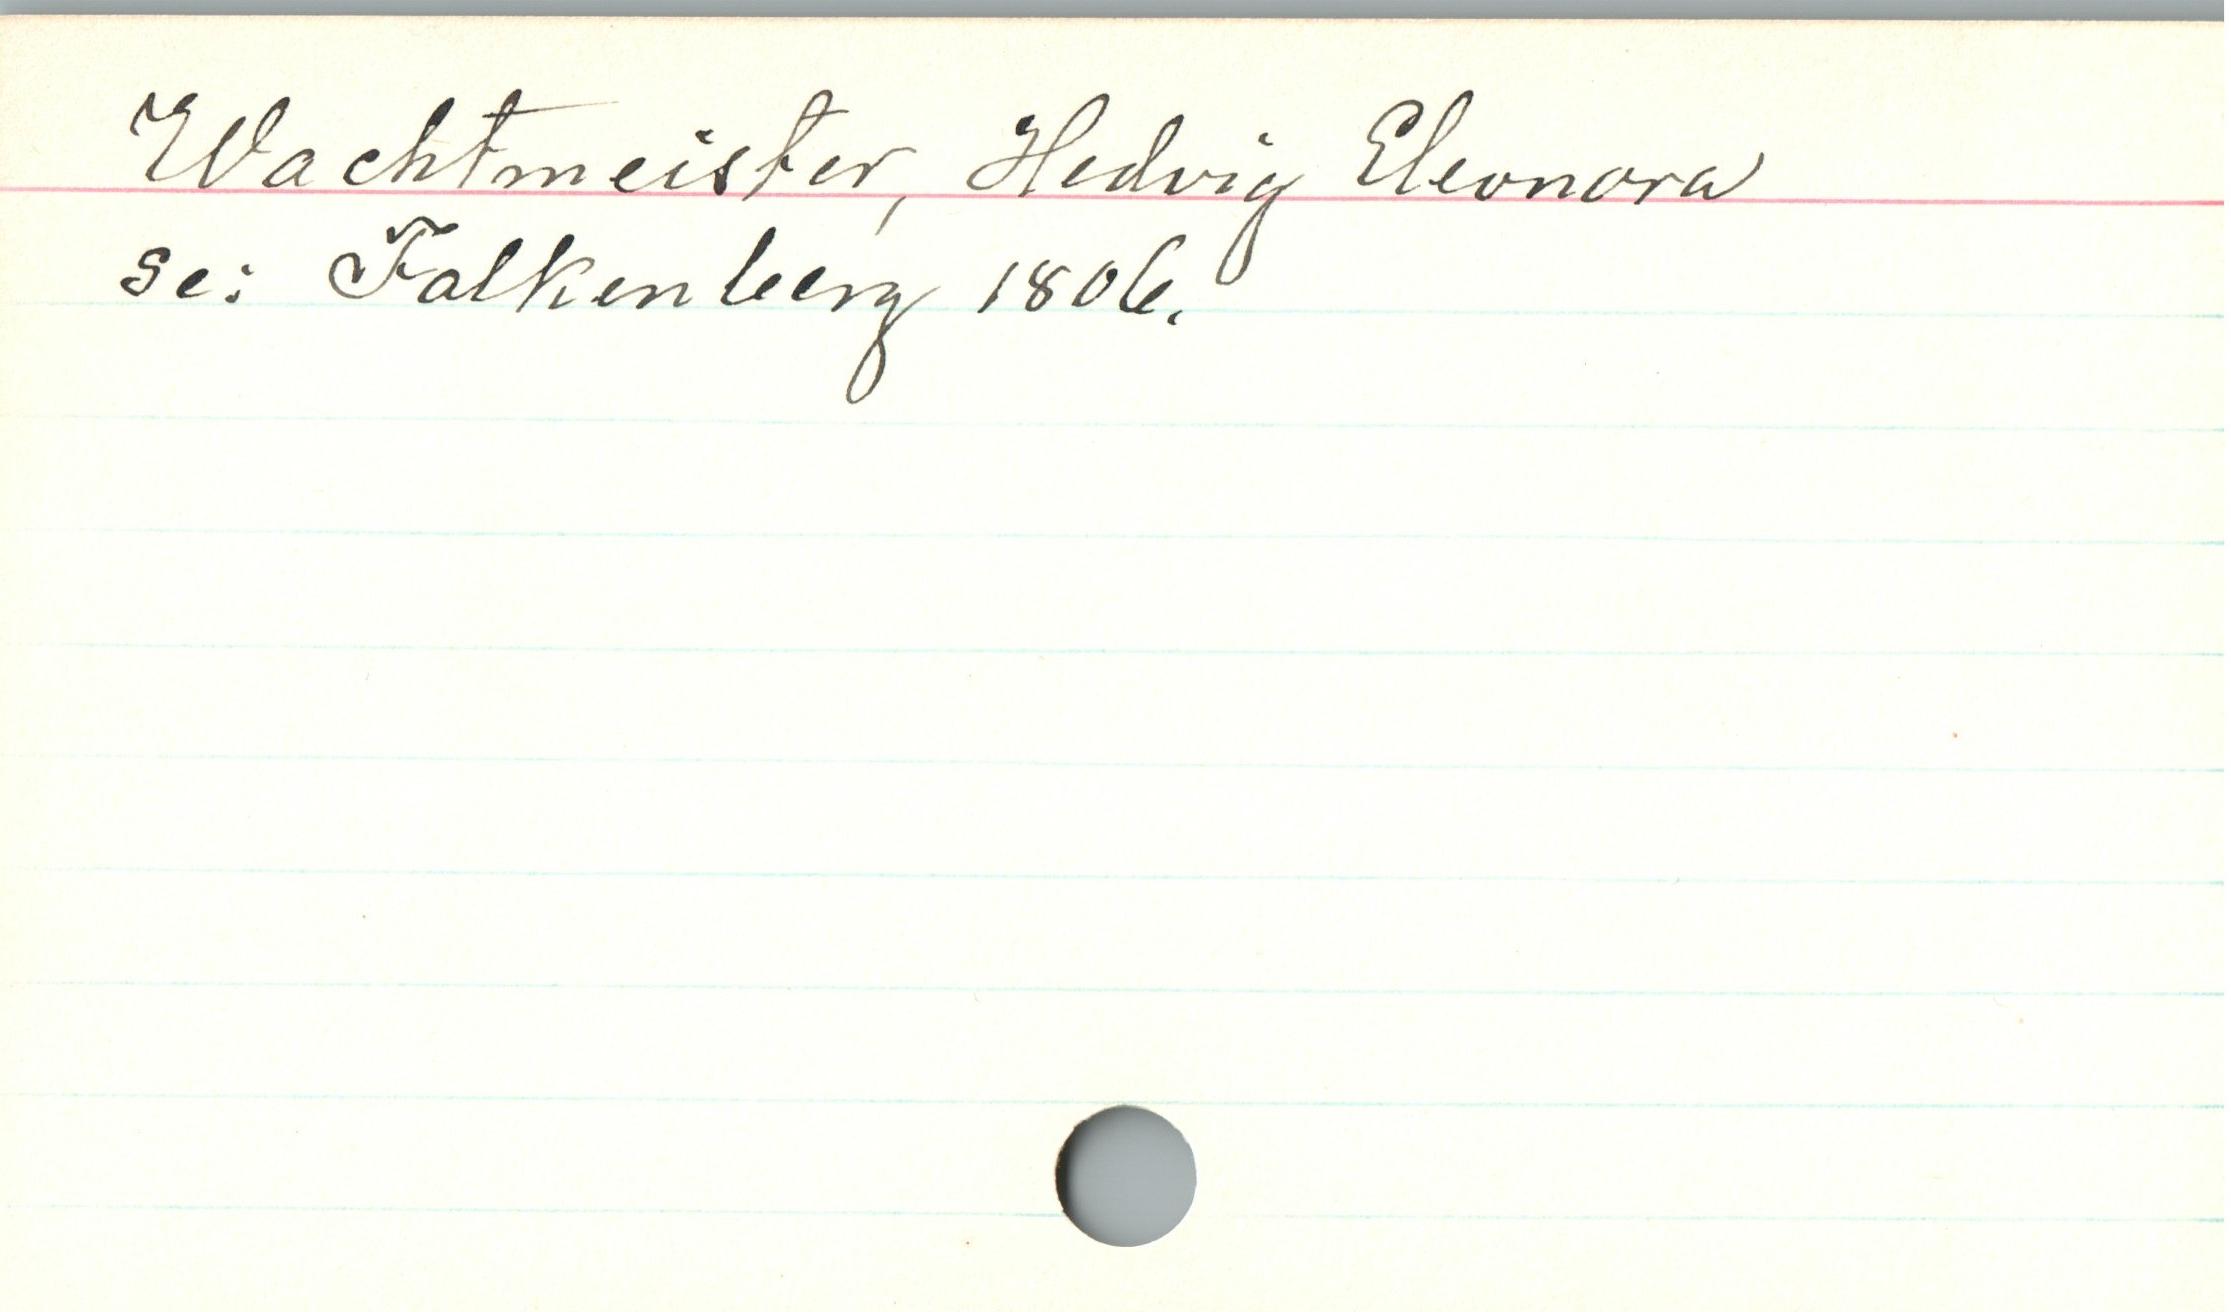 Wachtmeister, Hedvig Eleonora
se: Falkenberg 1806.